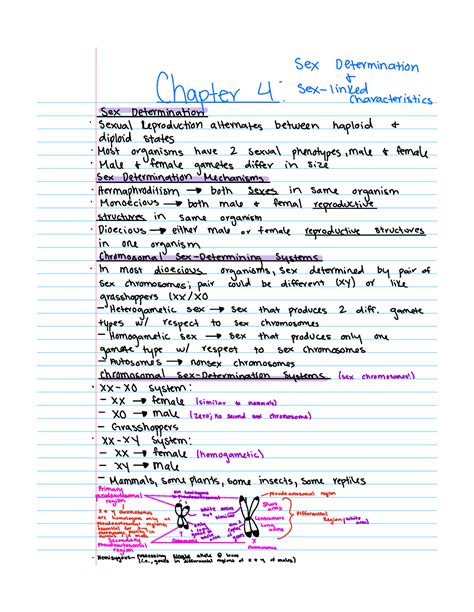 Chapter 4:
Sex Determination
&
Sex-linked
Characteristics
Sex Determination
· Sexual Reproduction alternates between haploid &
diploid states
· Most organisms have 2 sexual phenotypes, male & female
· Male & female gametes differ in size
Sex Determination Mechanisms
· Hermaphroditism → both sexes in same organism
· Monoecious → both male & femal reproductive
structures in same organism
· Dioecious → either male or female reproductive structures
in one organism
Chromosomal Sex-Determining Systems
· In most dioecious organisms, sex determined by pair of
sex chromosomes; pair could be different (XY) or like
grasshoppers (XX/XO
- Heterogametic sex → Sex that produces 2 diff. gamete
types w/ respect to sex chromosomes
- Homogametic sex → Sex that produces only one
gamete type w/ respect to sex chromosomes
· Autosomes → nonsex chromosomes
Chromosomal Sex-Determination Systems (sex chromosomes!)
· XX-XO System:
- XX → female (similar to mammals)
- XO → male (Zero; no second sex chromosome)
- Grasshoppers
· XX-XY System:
- XX → female (homogametic)
- XY → Male
- Mammals, some plants, some insects, some reptiles
Primary
pseudoautosomal
region
X & Y chromosomes
are homologous only at
pseudoautosomal regions
essential for X & Y
chromosome pairing in
Secondary
pseudoautosomal
region
white areas
similar
Y
Chromosome
X
Chromosome
Centromere
pseudoautosomal region
Short
arms
Long
arms
Differential
Region (white
area)
· Hemizygous - possessing single allele @ locus
(i.e., genes in differential regions of X & Y of males)